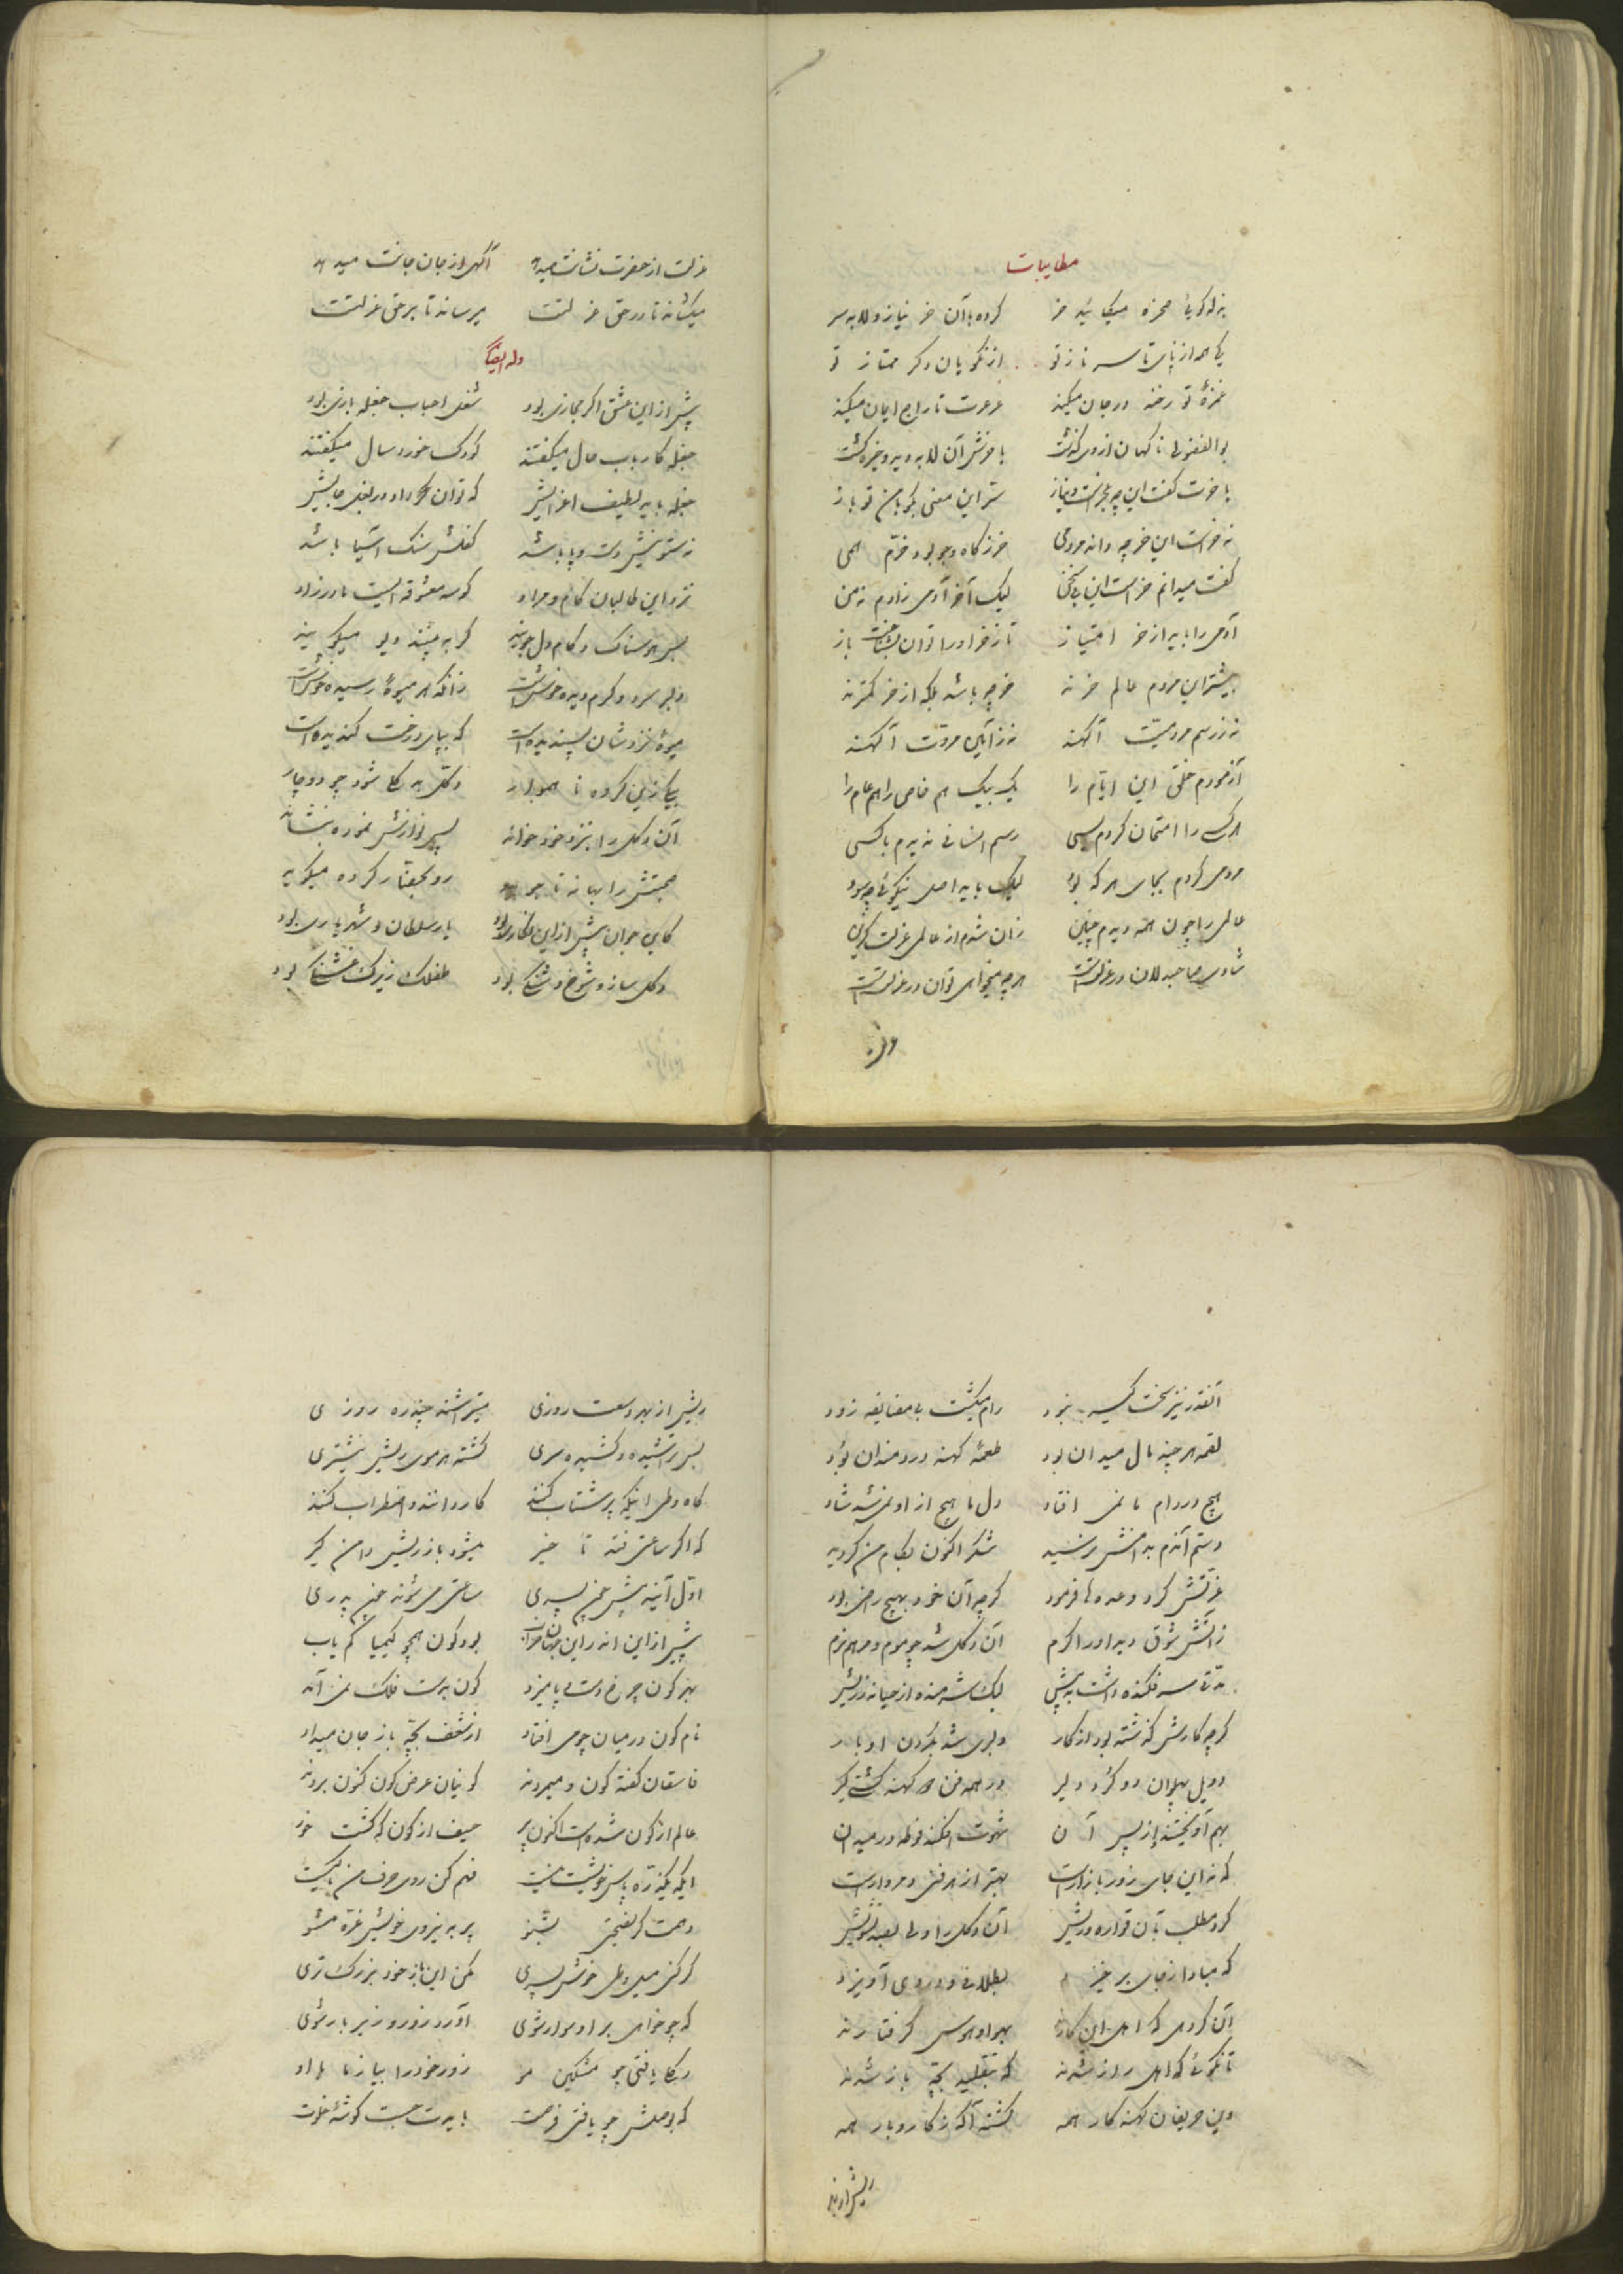 مطایبات
بذله‌گوئی مسخره میکایید خر کرده با آن خر نیاز و لابه سر
کی همه از پای تا سر ناز تو از نکویان دگر ممتاز تو
غمزهٔ تو رخنه در جان میکند عرعرت تاراج ایمان میکند
بوالفضولی ناگهان از وی گذشت با خرش آن لابه دید و خیره گشت
با خرت گفت این چه عجزست و نیاز سر این معنی بگو با من تو باز
نه خرست این خر چه داند مردمی خر ز کاه و جو بود خرم همی
گفت میدانم خرست این بی سخن لیک آخر آدمی زادم نه من
آدمی را باید از خر امتیاز تا ز خر او را توان بشناخت باز
بیشتر این مردم عالم خرند خر چه باشد بلکه از خر کمترند
نه ز رسم مردمیت آگهند نه ز آیین مروت آگهند
آزمودم خلق این ایام را یک بیک هم خاص را هم عام را
هر کسی را امتحان کردم بسی رسم انسانی ندیدم با کسی
مردمی کردم بجای هر که بود لیک با بد اصل نیکوئی چه سود
عالمی را چون همه دیدم چنین زان شدم از عالمی عزلت گزین
شادی صاحبدلان در عزلتست هر چه میخواهی توان در عزلتست
عزلت از حضرت نشانت میدهد آگهی از جان جانت میدهد
میکشاند تا در حق عزلتت میرساند تا بر حق عزلتت
وله ایضا
پیش از این عشق اگر مجازی بود شغل احباب جغله بازی بود
جغله کار باب حال میگفتند کودک خورد سال میگفتند
جغله باید لطیف اعزایش که توان داد در بغل جایش
نه ستونیش دست و پا باشد کفلش سنگ آسیا باشد
نزد این طالبان کام و مراد کوسه معشوقه ایست مادرزاد
بس هوسناک و کام دل جویند گر به بینند ولی میگویند
دلبر سرد و گرم دیده خوشست زانکه هر میوهٔ رسیده خوشست
میوهٔ نزدشان پسندیده است که بپای درخت گندیده است
یکی زین گروه ناهموار دکلی به کجا شود چو دوچار
آن دکل را بنزد خود خواند پس نوازش نموده بنشاند
صحبتش را بهانه تا جوید رو بگفتار کرده میگوید
کای جوان پیش از این نگاری بود یار سلطان و شهریاری بود
دکلی ساده و شوخ و شنگی بود طفلک زیرک قشنگی بود
آنقدر نیز سخت گیر نبود رام میگشت بی مضایقه زود
لقمه هر چند مال میدان بود طعمهٔ کهنه دردمندان بود
هیچ در دام ما نمی افتاد دل ما هیچ از او نمی شد شاد
دستم آندم بدامنش نرسید شکر اکنون بکام من گردید
عزتش کرد و وعده ها فرمود گرچه آن خود بهیچ راضی بود
زآتش شوق دید او را گرم آن دکل شد چو موم و مرهم نرم
مدتی سر فکنده داشت به پیش لیک شرمنده از حیا نه ز ریش
گرچه کارش گذشته بود از کار دلبری شد بگردن او بار
دو یل پهلوان دو گرد دلیر در همه فن کهنه کشتی گیر
بهم آویختند از پس آن شهوت افکند فوطه در میدان
که نه این جای زور بازارست بهتر از هر فنی و مردارست
کرد مطلب بآن قواره و ریش آن دکل را ولی بعد تشویش
که مبادا ز جای برخیزد بطلانی و در وی آویزد
آن گروهی که اهل این کارند بهر او هوس گرفتارند
تا نگوئی که اهل راز شدند که بتقلید بچه باز شدند
وین حریفان کهنه کار همه گشته آگه ز کار و بار همه
ریش از بهر
ریش از بهر وسعت روزی میتراشند چند ره روزی
بس تراشیده و کشیده سری گشته هر موی ریش نیشتری
گاه وطی اینکه پر شتاب کنند کار دانند و اضطراب کنند
که اگر ساعتی فتد تا خیر میشود باز ریش دامن گیر
اول آیند پیش چون پسری ساعتی می شوند چون پدری
پیش از این اندر این جهان خراب بود کون همچو کیمیا کم یاب
بهر کون چرخ دست و پا میزد کون بدست فلک نمی آمد
نام کون در میان چو می افتاد از شعف بچه باز جان میداد
فاسقان گفته کون و میمردند گونیان عرض کون کنون بردند
عالم از کون شده است اکنون پر حیف از کون که گشت خور
ایکه یکذره پاس خویشت نیست فهم کن روی حرف من با کیست
دهمت گر نصیحتی بشنو پر به نیروی خویش غره مشو
گر کنی میل وطی خوش پسری مکن این با ز خود بزرگ تری
که چو خواهی بر او سوار شوی آورد زور و زیر بار شوی
یکجا یافتی چو مشکین مو زور خود را بیازما با او
که بوصلش چو یافتی فرصت بایدت جست گوشهٔ خلوت